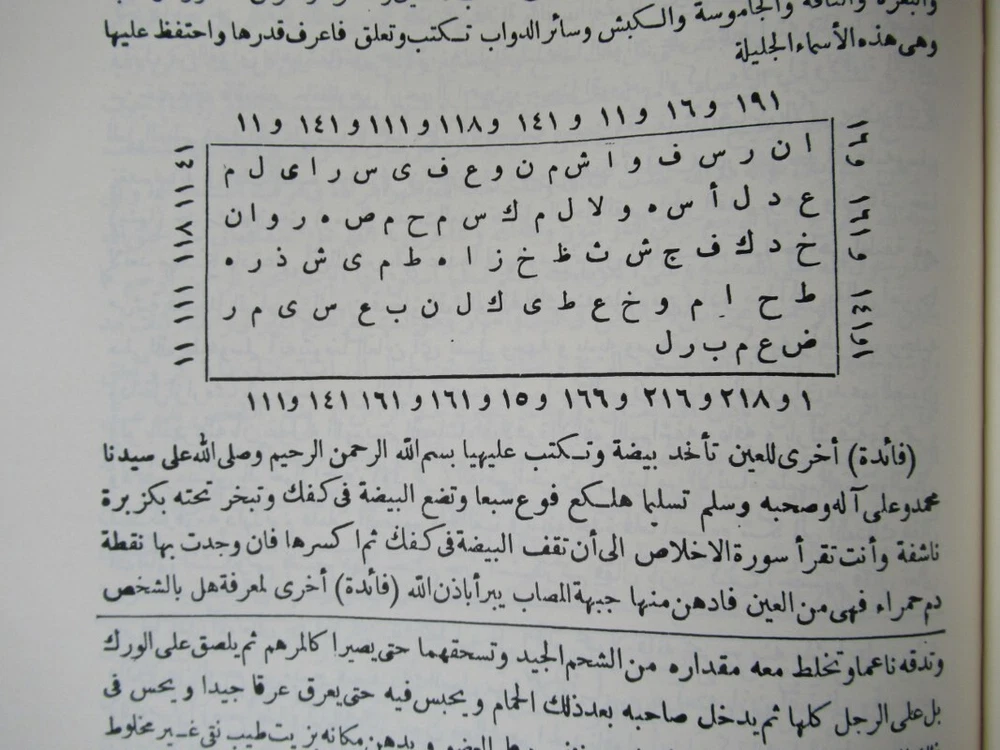 والبقرة والناقة والجاموسة والكبش وسائر الدواب تكتب وتعلق فاعرف قدرها واحتفظ عليها
وهى هذه الأسماء الجليلة
١٩١ و ١٦ و ١١ و ١٤١ و ١١٨ و ١١١ و ١٤١ و ١١
ا ن ر س ف و ا ش م ن و ع ف ى س ر ا ى ل م
ع د ل أ س ه و لا ل م ك س م ح م ص ه ر و ا ن
خ د ك ف ج ش ث ظ خ ز ا ه ط م ى ش ذ ر ه
ط ح ا م و خ ع ط ى ك ل ن ب ع س ى م ر
ض ع م ب ر ل
١ و ٢١٨ و ٢١٦ و ١٦٦ و ١٥ و ١٦١ و ١٦١ ١٤١ و ١١١
(فائدة) أخرى للعين تأخد بيضة وتكتب عليهيا بسم الله الرحمن الرحيم وصلى الله على سيدنا
محمد وعلى آله وصحبه وسلم تسليما هلسكع فوع سبعا وتضع البيضة فى كفك وتبخر تحته بكزبرة
ناشفة وأنت تقرأ سورة الاخلاص الى أن تقف البيضة فى كفك ثم اكسرها فان وجدت بها نقطة
دم حمراء فهى من العين فادهن منها جبهة المصاب يبرأ باذن الله (فائدة) أخرى لمعرفة هل بالشخص
وتدقه ناعما وتخلط معه مقداره من الشحم الجيد وتسحقهما حتى يصيرا كالمرهم ثم يلصق على الورك
بل على الرجل كلها ثم يدخل صاحبه بعد ذلك الحمام و يحبس فيه حتى يعرق عرقا جيدا و يحس فى
العضو و يدهن مكانه بزيت طيب نقى غير مخلوط